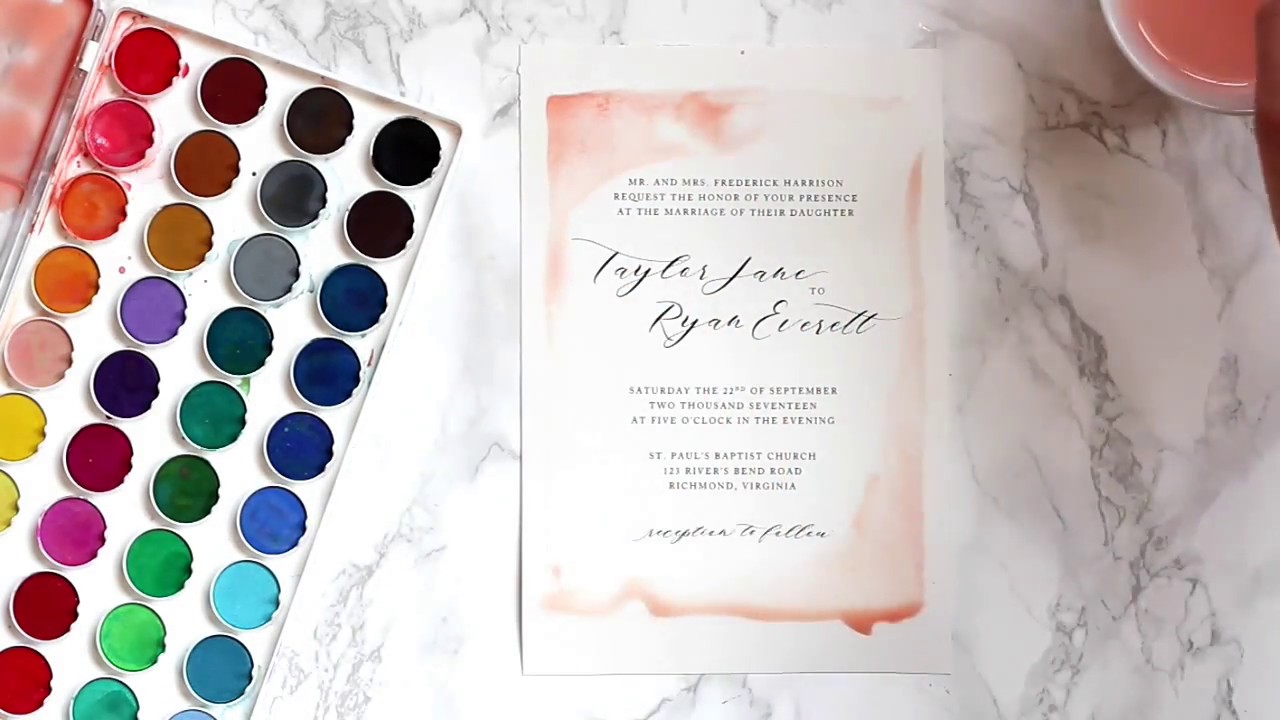 MR. AND MRS. FREDERICK HARRISON
REQUEST THE HONOR OF YOUR PRESENCE
AT THE MARRIAGE OF THEIR DAUGHTER
Taylor Jane
TO
Ryan Everett
SATURDAY THE 22ND OF SEPTEMBER
TWO THOUSAND SEVENTEEN
AT FIVE O'CLOCK IN THE EVENING
ST. PAUL'S BAPTIST CHURCH
123 RIVER'S BEND ROAD
RICHMOND, VIRGINIA
reception to follow